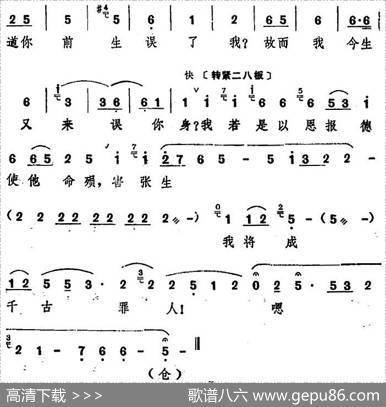 2 5 5 5 6 1 2 65 5 6·6
道你 前 生 误 了 我？故而 我 今生
快〔转紧二八板〕
6 3 36 61 i i 6 6 53 i
又 来 误 你 身？我 若 是 以 恩报 德
6 65 2 5 i i 2765 - 5 i 3 2 2
使他 命 殒，害 张生
(2 2 22 22 22 22 2 -) 1 12 5 - (5 -)
我 将 成
12 5 5 3· 2 2 2512 0 2·5 5·1
千古 罪 人！ 嗯
2 1 - 7 6 6 - 5 -
(仓)
高清下载 >>>
歌谱八六 www.gepu86.com